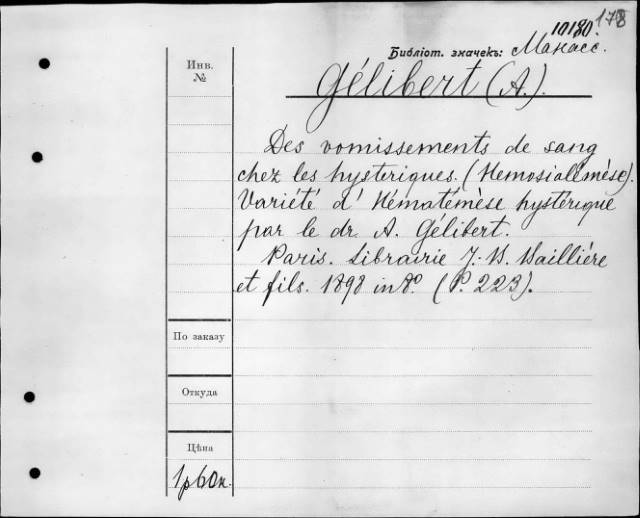 178
10180.
Библіот. значекъ: Манасс.
Инв.
№
Gélibert (A.).
Des vomissements de sang
chez les hysteriques. (Hemosialémèse).
Variété d'Hématémèse hystérique
par le dr. A. Gélibert.
Paris. Librairie J.-B. Baillière
et fils. 1898 in 8°. (P. 223).
По заказу
Откуда
Цѣна
1р60к.